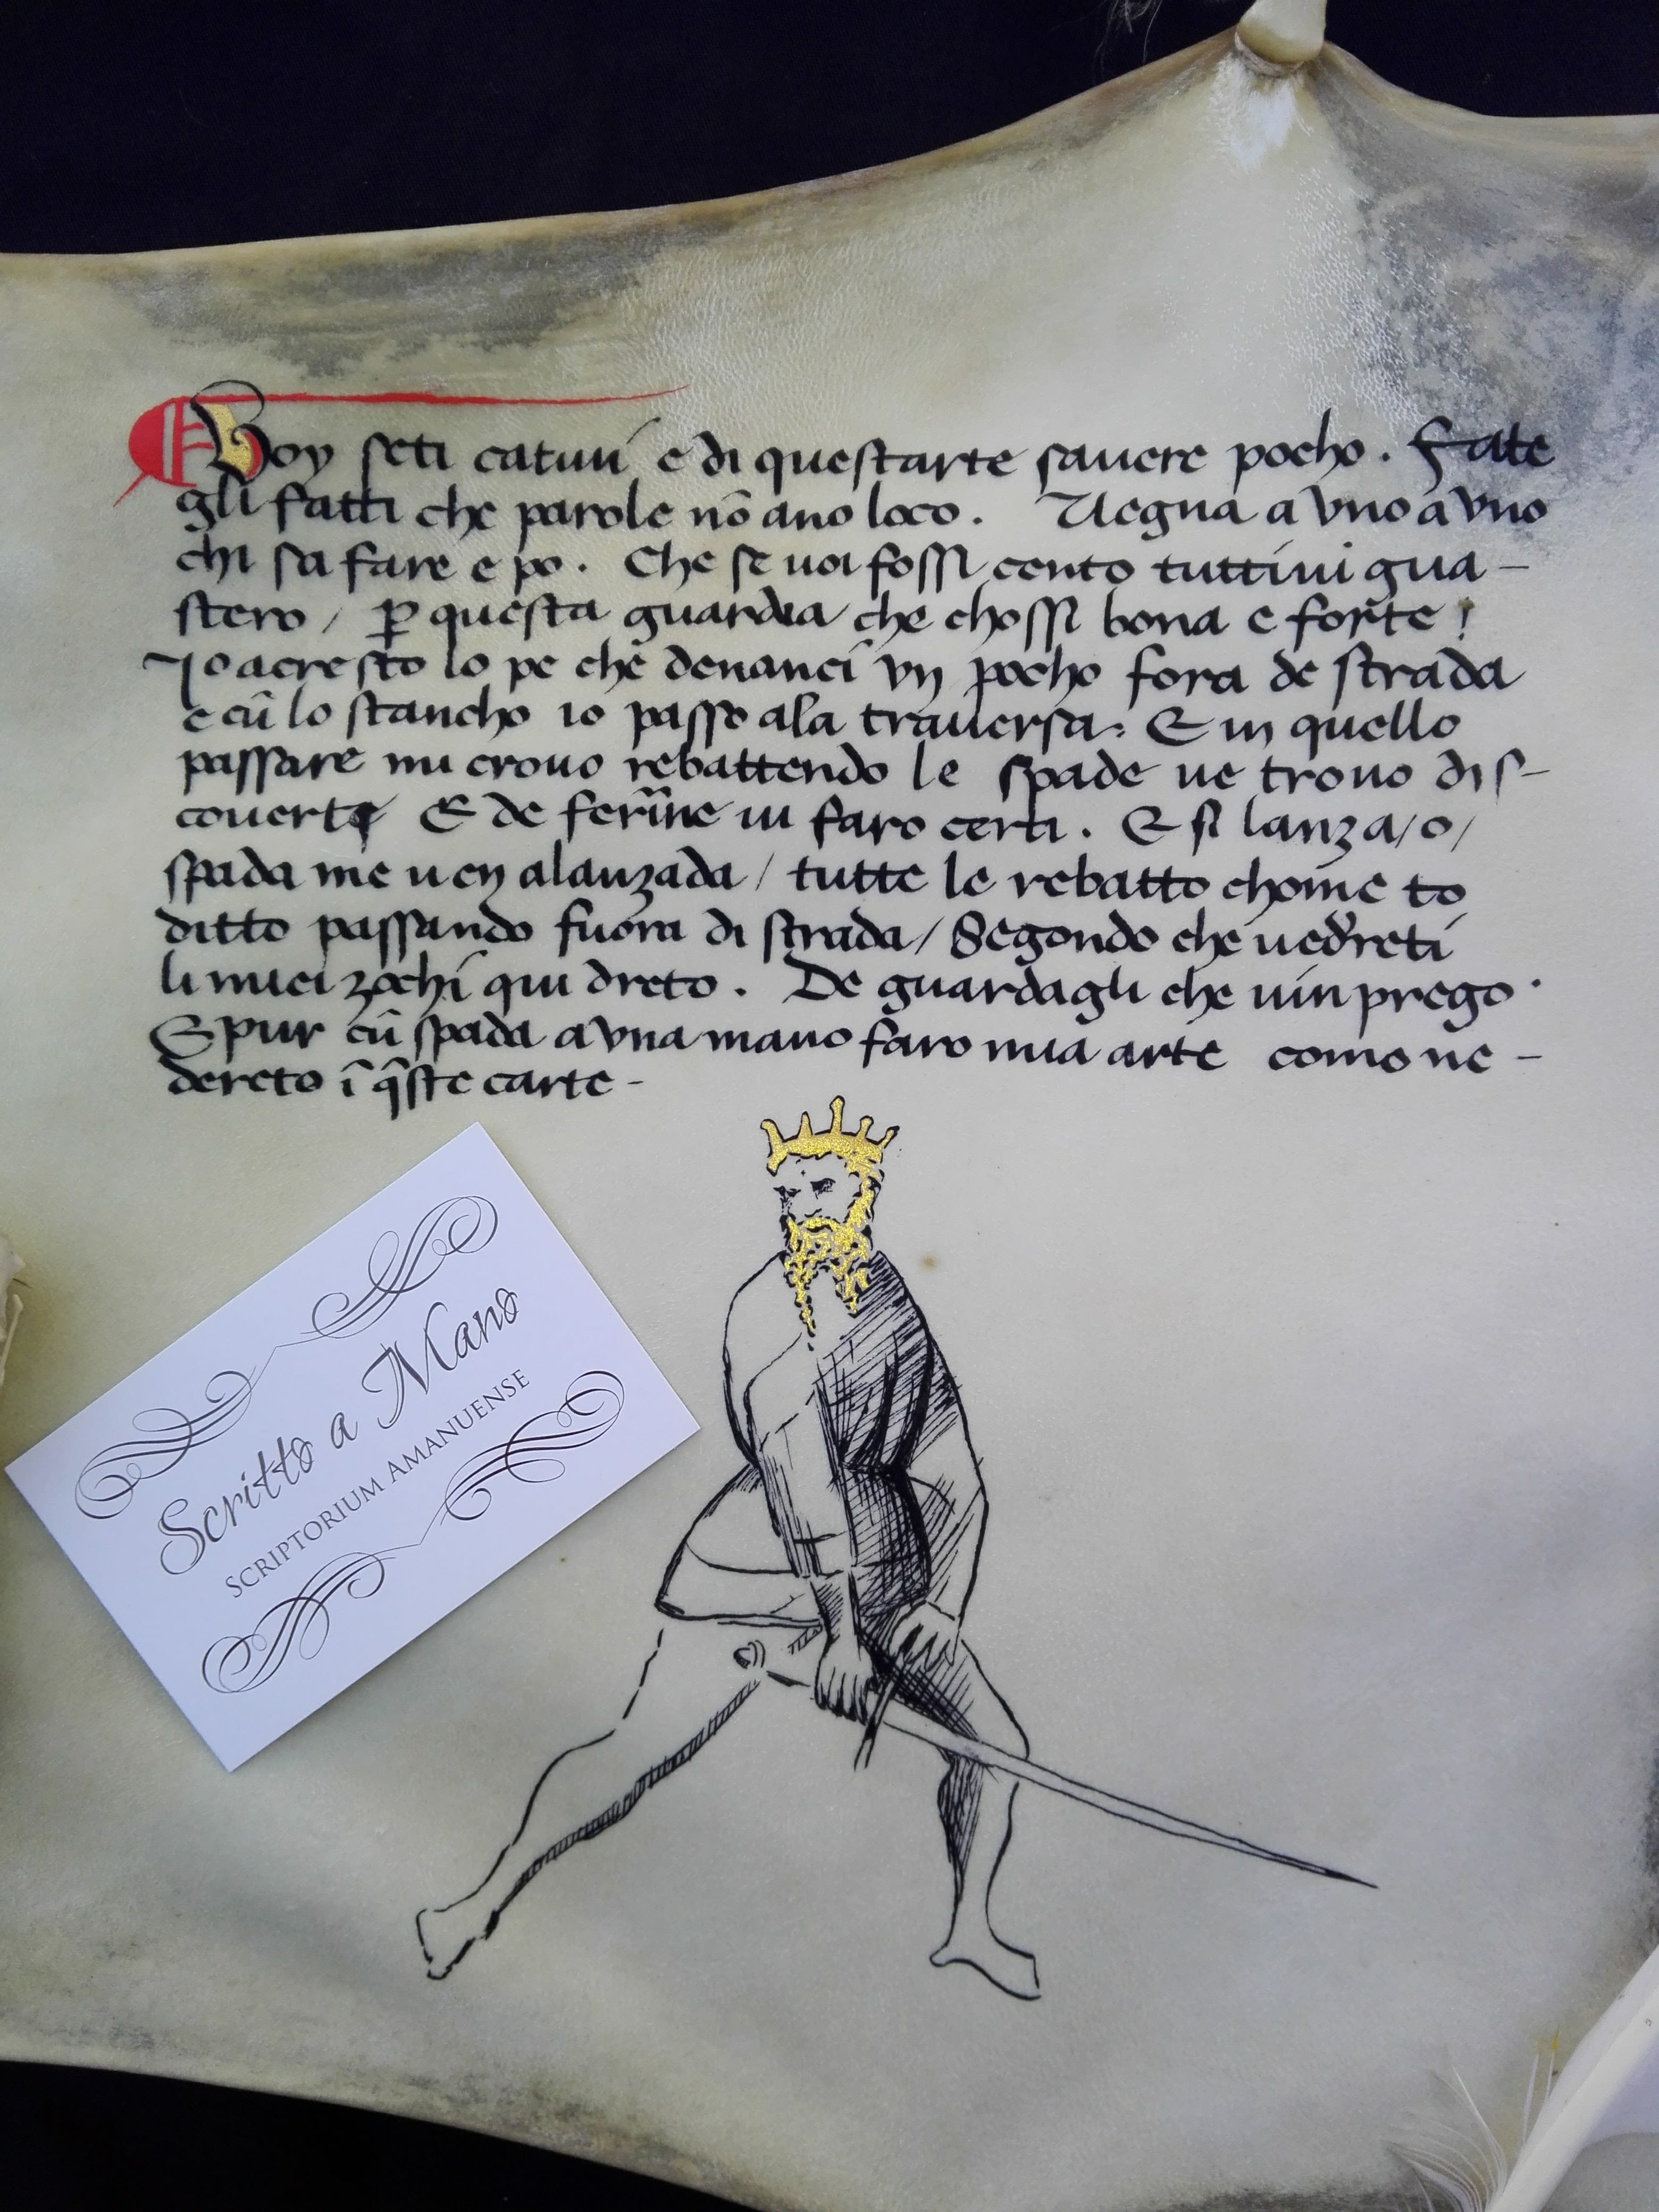 Voy seti catiui e di questarte sauere pocho. Fate
gli fatti che parole nō ano loco. Uegna a vno a vno
chi sa fare e po. Che se uoi fossi cento tuttiui gua-
stero / ꝑ questa guardia che chossi bona e forte!
Io acresto lo pe che denanci vn pocho fora de strada
e cū lo stancho io passo ala trauersa. E in quello
passare mi crouo rebattendo le spade ue trouo dis-
couerti E de ferire ui faro certi. E si lanza/o/
spada me uen alanzada / tutte le rebatto chome to
ditto passando fuora di strada / Segondo che uedreti
li miei zochi qui dreto. De guardagli che uin prego.
E pur cū spada a vna mano faro mia arte como ue-
dereto ī q̄ste carte-
Scritto a Mano
SCRIPTORIUM AMANUENSE